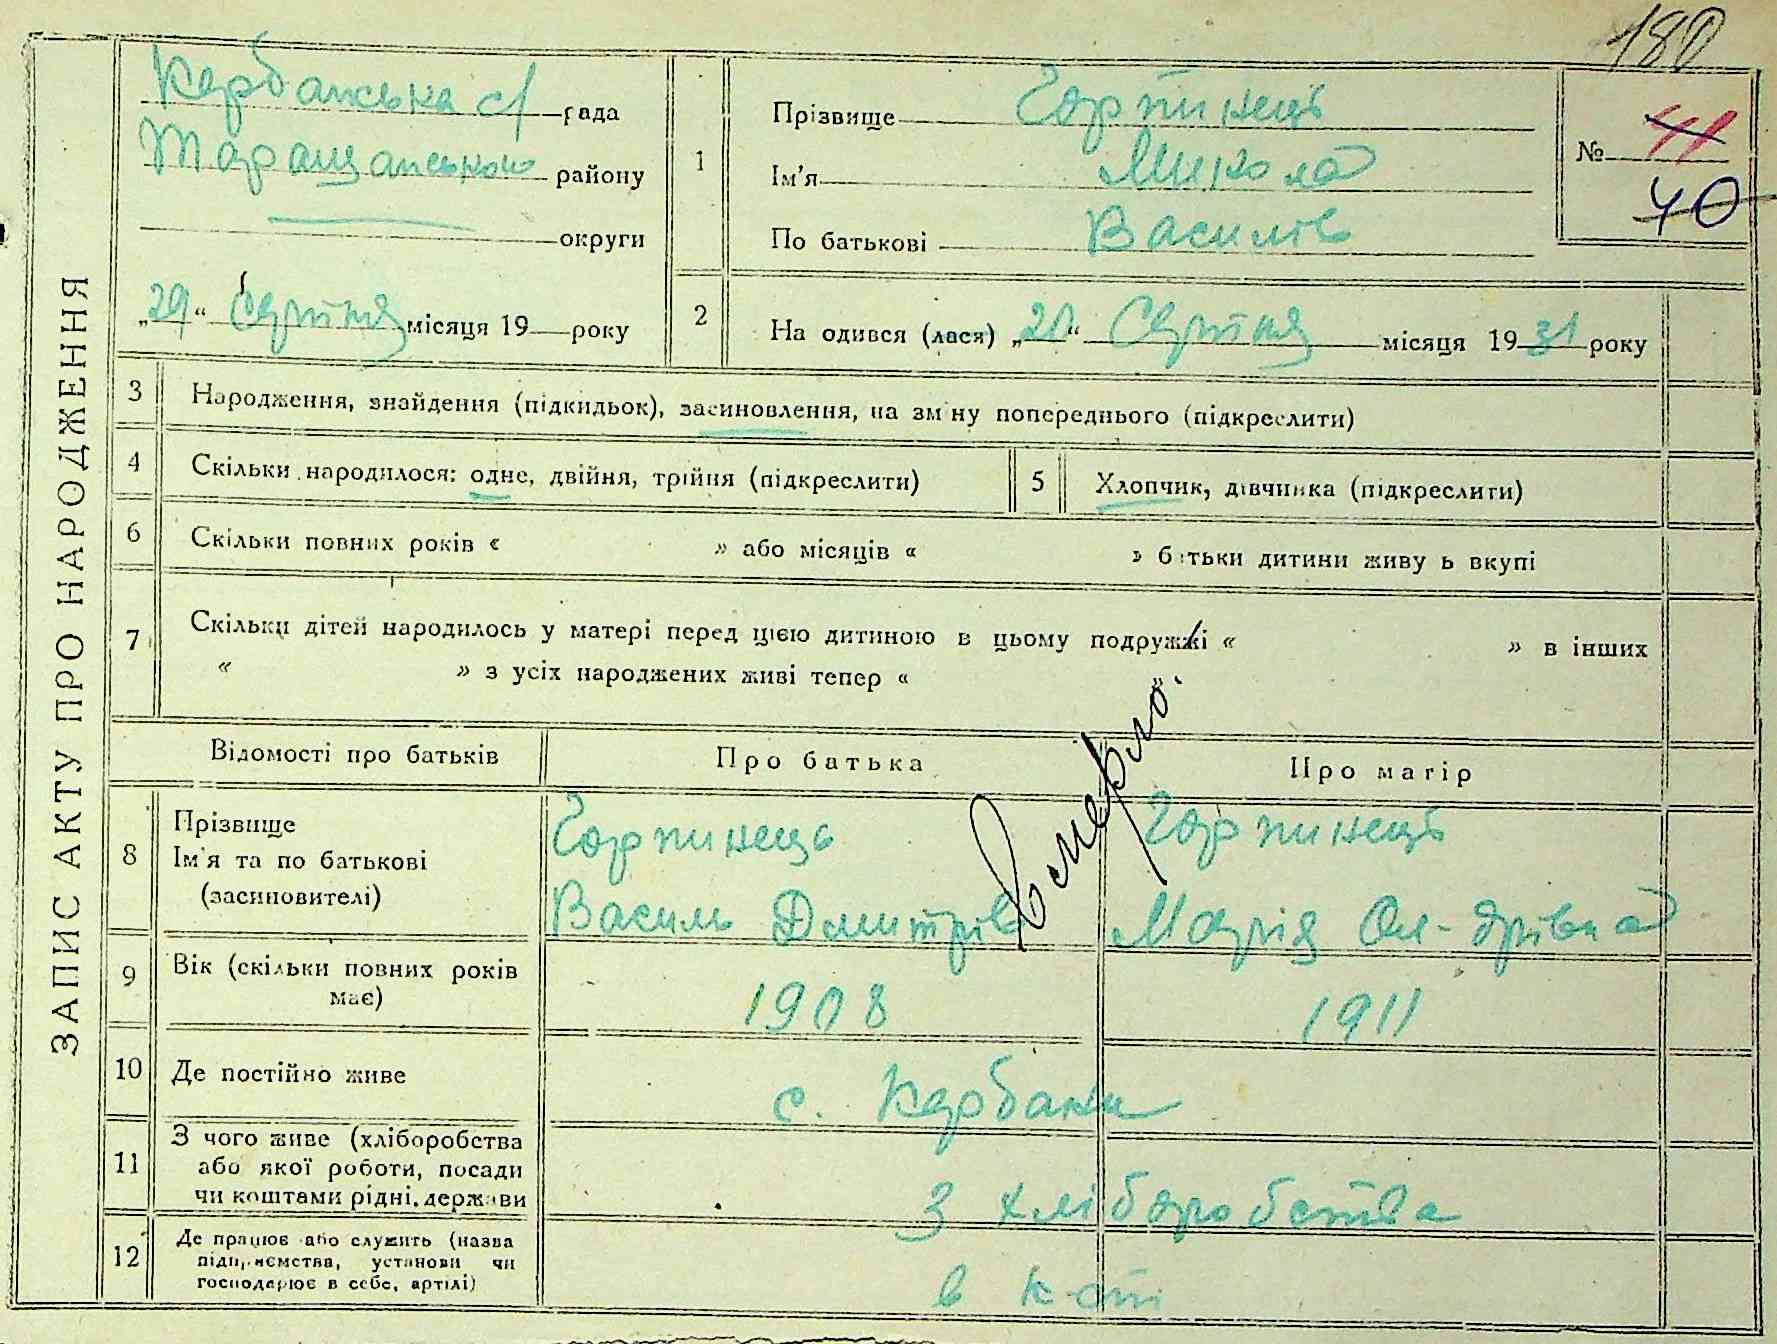 180
ЗАПИС АКТУ ПРО НАРОДЖЕННЯ
Карбанська с/ рада
Таращанського району
округи
„29“ Серпня місяця 19 року
1
Прізвище Горпинець
Ім'я Микола
По батькові Василів
№ 41
40
2
На одився (лася) „20“ Серпня місяця 1931 року
3
Народження, знайдення (підкидьок), засиновлення, на зм ну попереднього (підкреслити)
4
Скільки народилося: одне, двійня, трійня (підкреслити)
5
Хлопчик, дівчинка (підкреслити)
6
Скільки повних років « » або місяців « » б тьки дитини живу ь вкупі
7
Скільки дітей народилось у матері перед цією дитиною в цьому подружжі « » в інших
« » з усіх народжених живі тепер « »
вмерло
Відомості про батьків
Про батька
Про матір
8
Прізвище
Ім'я та по батькові
(засиновителі)
Горпинець
Василь Дмитрів
Горпинець
Марія Ол-дрівна
9
Вік (скільки повних років
має)
1908
1911
10
Де постійно живе
с. Карбани
11
З чого живе (хліборобства
або якої роботи, посади
чи коштами рідні, держави
З хліборобства
12
Де працює або служить (назва
підпр.ємства, установи чи
господарює в себе, артілі)
в к-опі